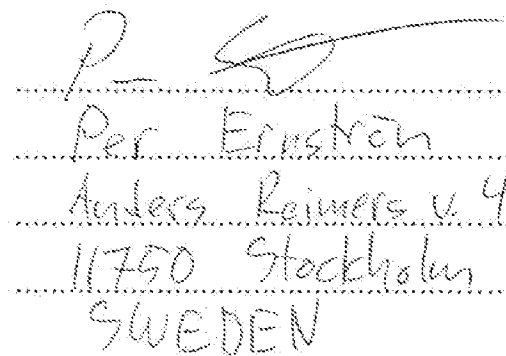 Per Ernström
Anders Reimers v. 4
11750 Stockholm
SWEDEN